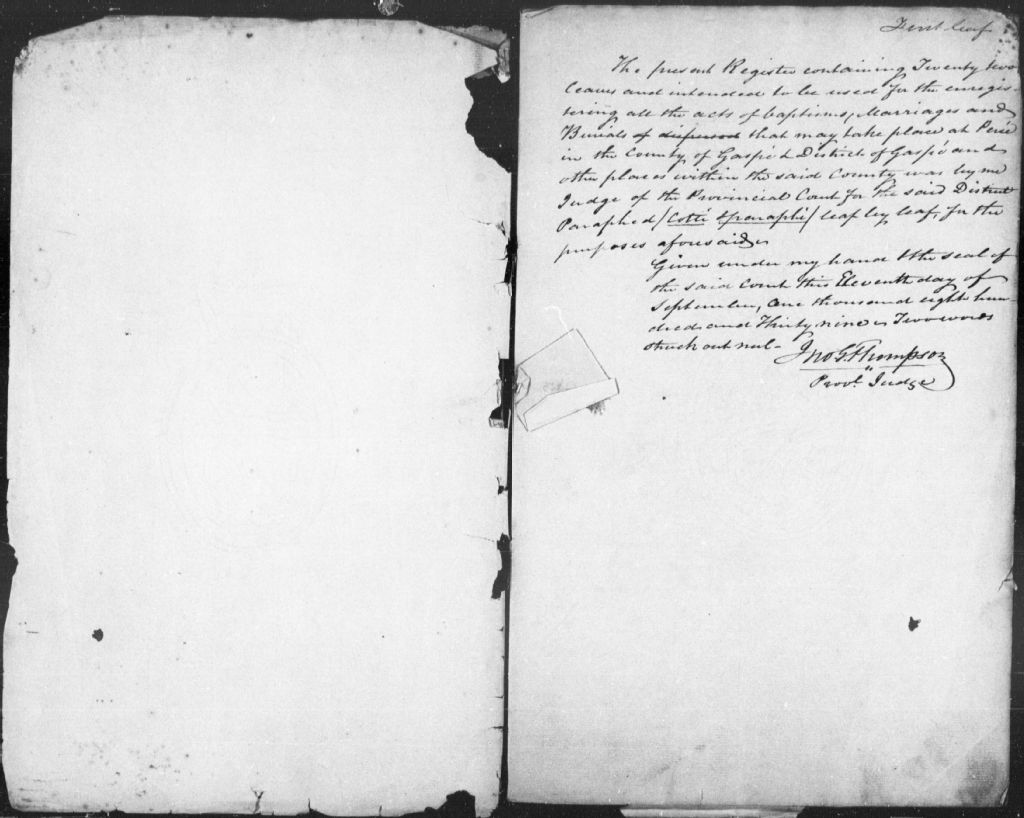 First leaf
The present Register containing Twenty two
leaves and intended to be used for the enregis-
tering all the acts of baptisms, Marriages and
Burials of that may take place at Percé
in the County of Gaspé & District of Gaspé and
other places within the said County was by me
Judge of the Provincial Court for the said District
Paraphed /Cotté & paraphé/ leaf by leaf, for the
purposes aforesaid
Given under my hand & the seal of
the said Court this Eleventh day of
September, One thousand eight hun-
dred and Thirty nine Two words
struck out nul-
Jno G. Thompson
Provl. Judge